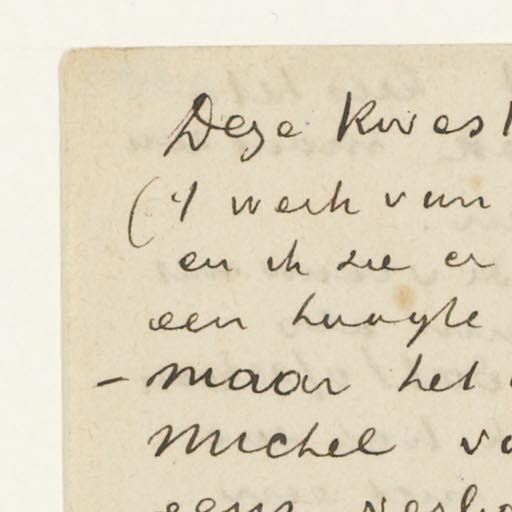 Deze kwest
('t werk van
en ik zie er
een hoogte
- maar het
Michel va
eens